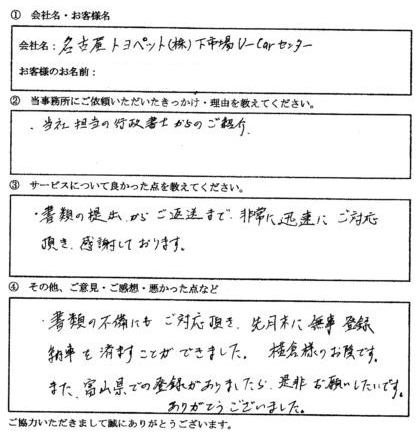 ① 会社名・お客様名
会社名：名古屋トヨペット(株)下市場U-Carセンター
お客様のお名前：
② 当事務所にご依頼いただいたきっかけ・理由を教えてください。
・当社担当の行政書士からのご紹介
③ サービスについて良かった点を教えてください。
・書類の提出からご返送まで、非常に迅速にご対応
頂き、感謝しております。
④ その他、ご意見・ご感想・悪かった点など
・書類の不備にもご対応頂き、先月末に無事登録
納車を済ますことができました。 植倉様のお陰です。
また、富山県での登録がありましたら、是非お願いしたいです。
ありがとうございました。
ご協力いただきまして誠にありがとうございます。